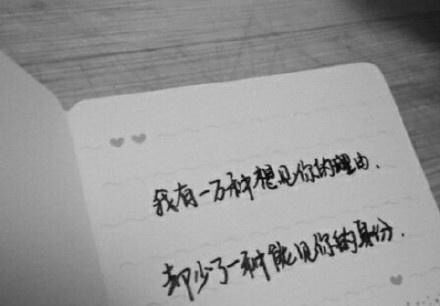 我有一万种想见你的理由.
却少了一种能见你的身份.